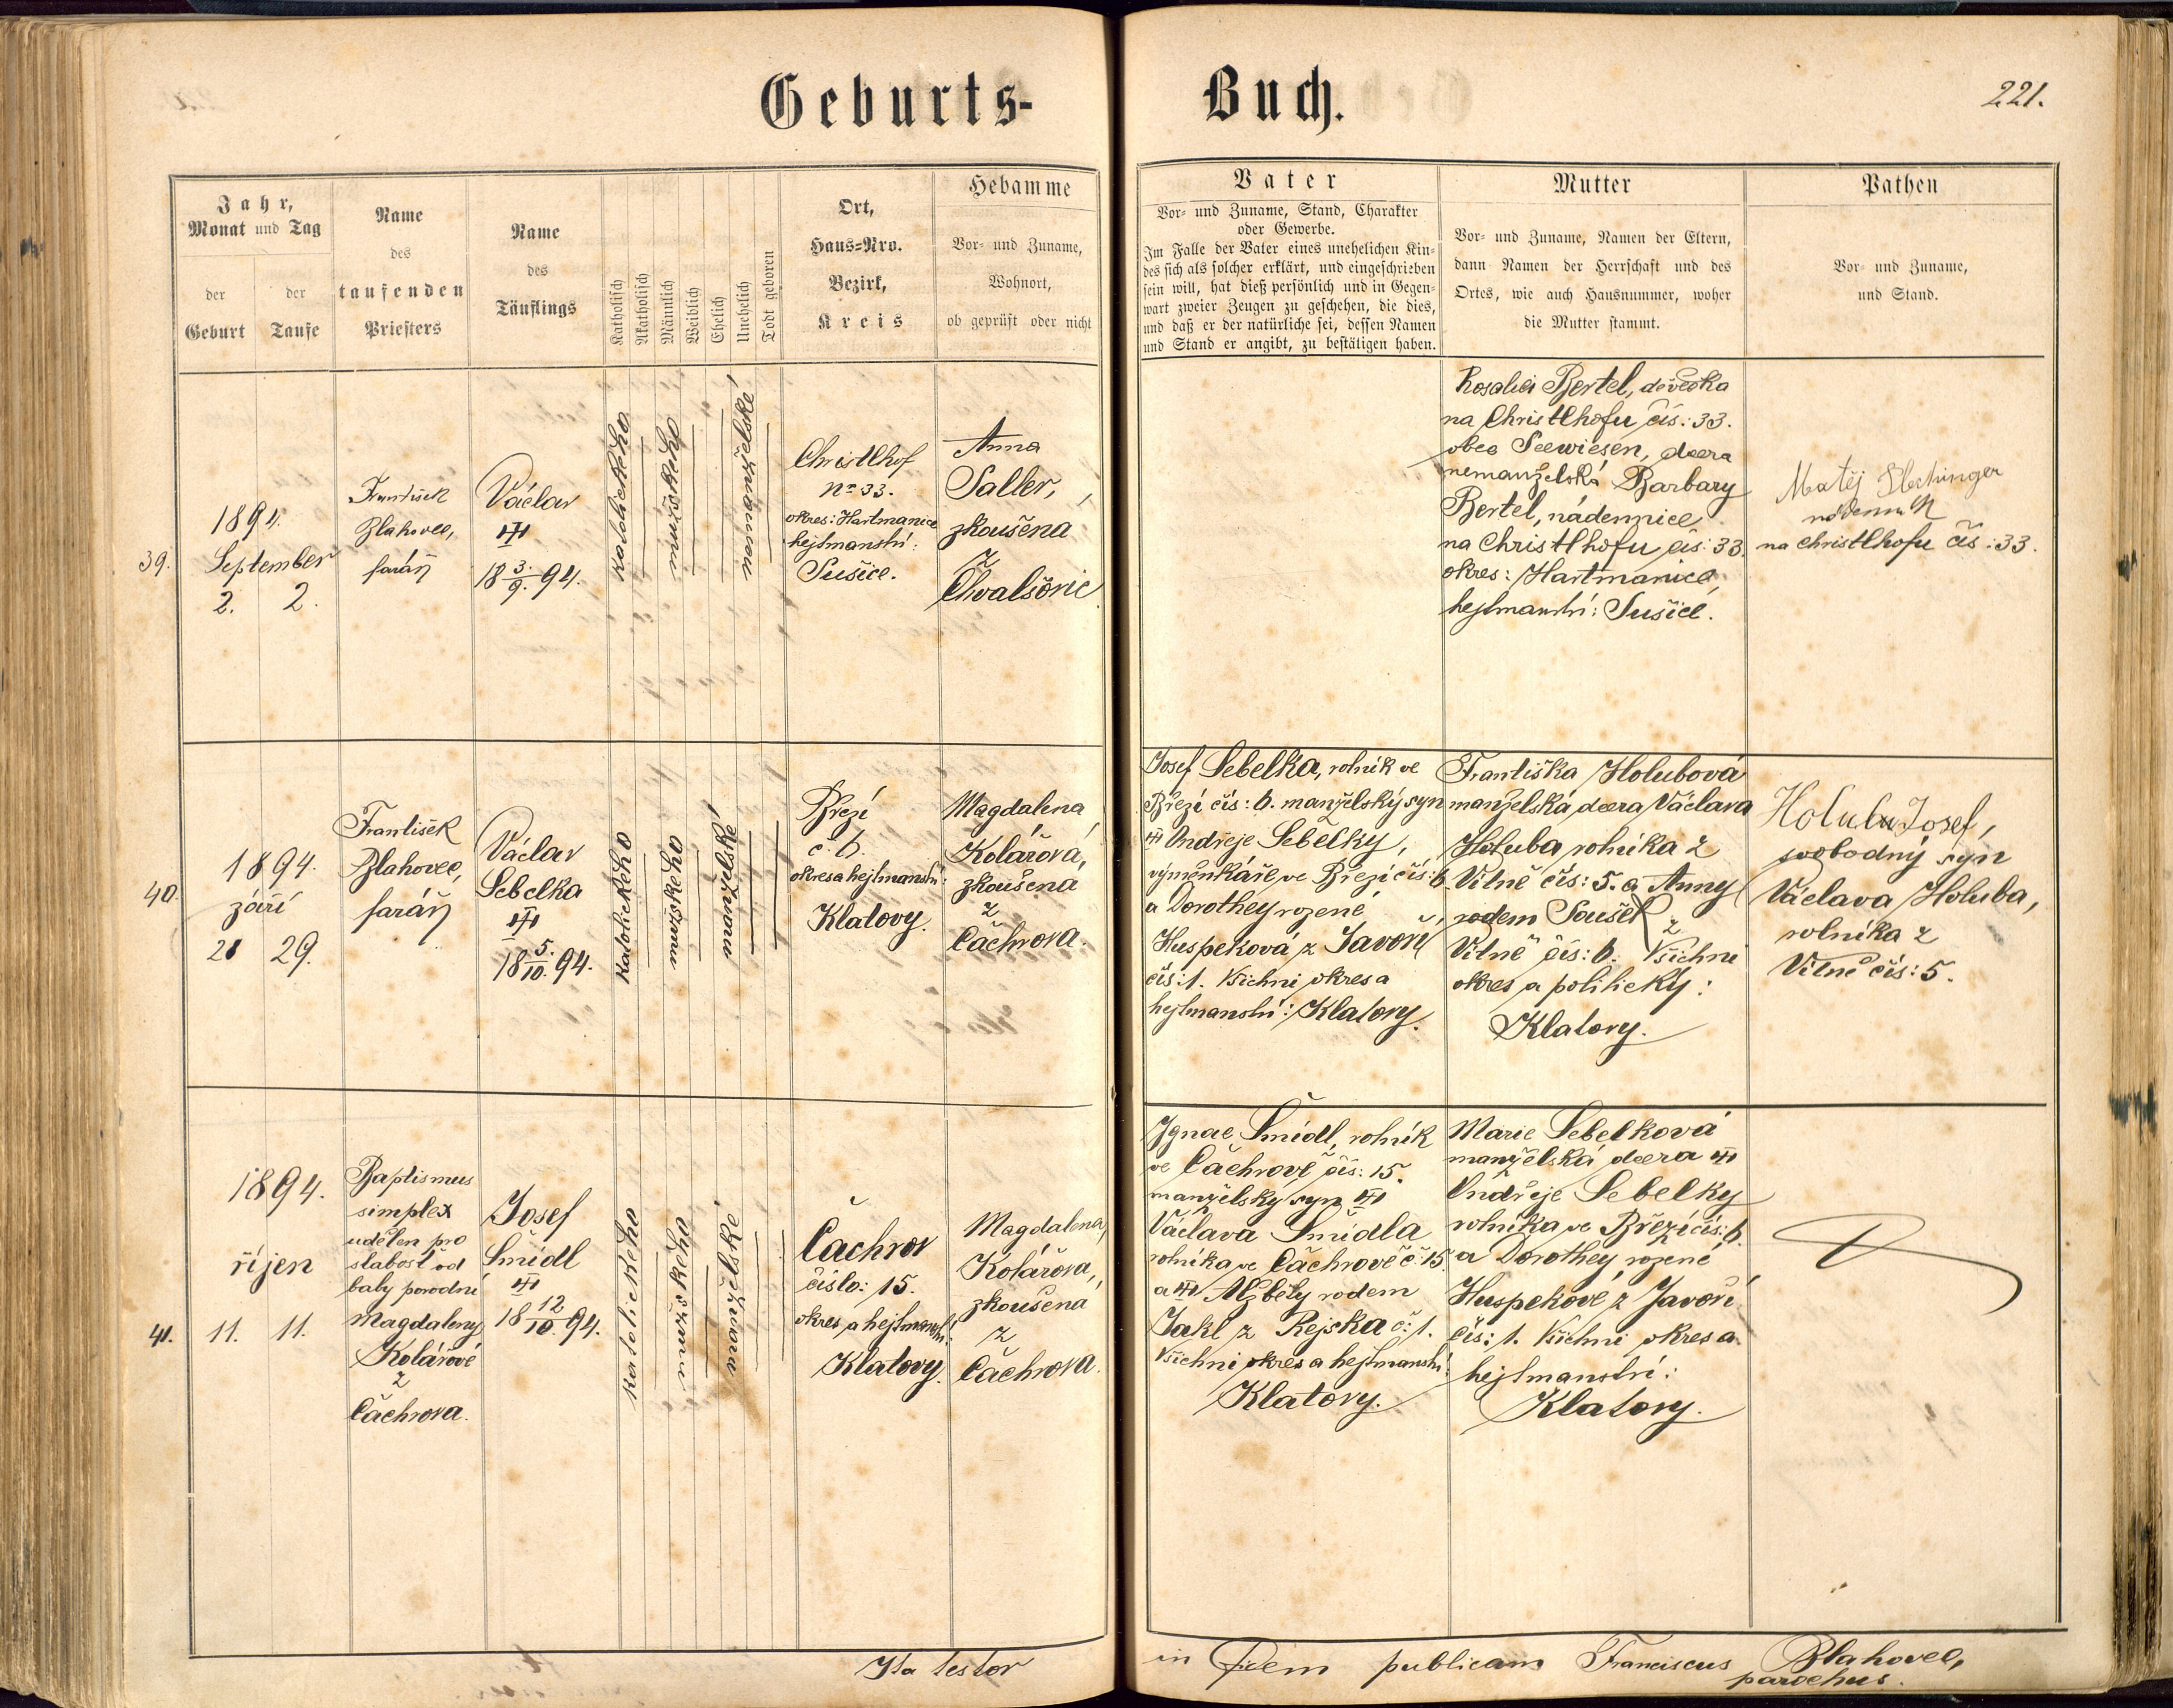 Geburts-
Buch.
221.
Jahr,
Monat und Tag
der
Geburt
der
Taufe
Name
des
taufenden
Priesters
Name
des
Täuflings
Katholisch
Akatholisch
Männlich
Weiblich
Ehelich
Unehelich
Todt geboren
Ort,
Haus-Nro.
Bezirk,
Kreis
Hebamme
Vor- und Zuname,
Wohnort,
ob geprüft oder nicht
Vater
Vor- und Zuname, Stand, Charakter
oder Gewerbe.
Im Falle der Vater eines unehelichen Kin-
des sich als solcher erklärt, und eingeschrieben
sein will, hat dieß persönlich und in Gegen-
wart zweier Zeugen zu geschehen, die dies,
und daß er der natürliche sei, dessen Namen
und Stand er angibt, zu bestätigen haben.
Mutter
Vor- und Zuname, Namen der Eltern,
dann Namen der Herrschaft und des
Ortes, wie auch Hausnummer, woher
die Mutter stammt.
Pathen
Vor- und Zuname,
und Stand.
39.
1894.
September
2. 2.
František
Blahovec,
farář
Václav
18 3./9. 94.
katolického
mužského
nemanželské
Christlhof
Nr 33.
okres: Hartmanice
hejtmanství:
Sušice.
Anna
Saller,
zkoušena
z
Chvalšovic
Rosalia Bertel, děvečka
na Christlhofu čís: 33.
obec Seewiesen, dcera
nemanželská Barbary
Bertel, nádennice
na Christlhofu čís: 33.
okres: Hartmanice,
hejtmanství: Sušice.
Matěj
nádenník
na Christlhofu čís: 33.
40.
1894.
září
28 29.
František
Blahovec,
farář
Václav
Sebelka
18 5./10. 94.
katolického
mužského
manželské
Březí
č. 6.
okres a hejtmanství:
Klatovy.
Magdalena
Kolářová,
zkoušená
z
Čachrova.
Josef Sebelka, rolník ve
Březí čís: 6. manželský syn
Ondřeje Sebelky,
výměnkáře ve Březí čís: 6
a Dorothey rozené
Huspeková z Javoří
čís: 1. Všichni okres a
hejtmanství: Klatovy.
Františka Holubová
manželská dcera Václava
Holuba rolníka z
Vitně čís: 5. a Anny
rodem Soušek z
Vitně čís: 6. Všichni
okres a politický:
Klatovy.
Holub Josef,
svobodný syn
Václava Holuba,
rolníka z
Vitně čís: 5.
41.
1894.
říjen
11. 11.
Baptismus
simplex
udělen pro
slabost od
baby porodní
Magdaleny
Kolářové
z
Čachrova.
Josef
Šmídl
18 12/10. 94.
katolického
mužského
manželské
Čachrov
číslo: 15.
okres a hejtmanství:
Klatovy.
Magdalena
Kolářova,
zkoušená
z
Čachrova.
Ignac Šmídl, rolník
ve Čachrově čís: 15.
manželský syn
Václava Šmídla
rolníka ve Čachrově č: 15.
a Alžběty rodem
Jakl z Rejska č: 1.
Všichni okres a hejtmanství:
Klatovy.
Marie Sebelková
manželská dcera
Ondřeje Sebelky
rolníka ve Březí čís: 6.
a Dorothey rozené
Huspekové z Javoří
čís: 1. Všichni okres a
hejtmanství:
Klatovy.
Ita testor
in fidem publicam Franciscus Blahovec,
parochus.